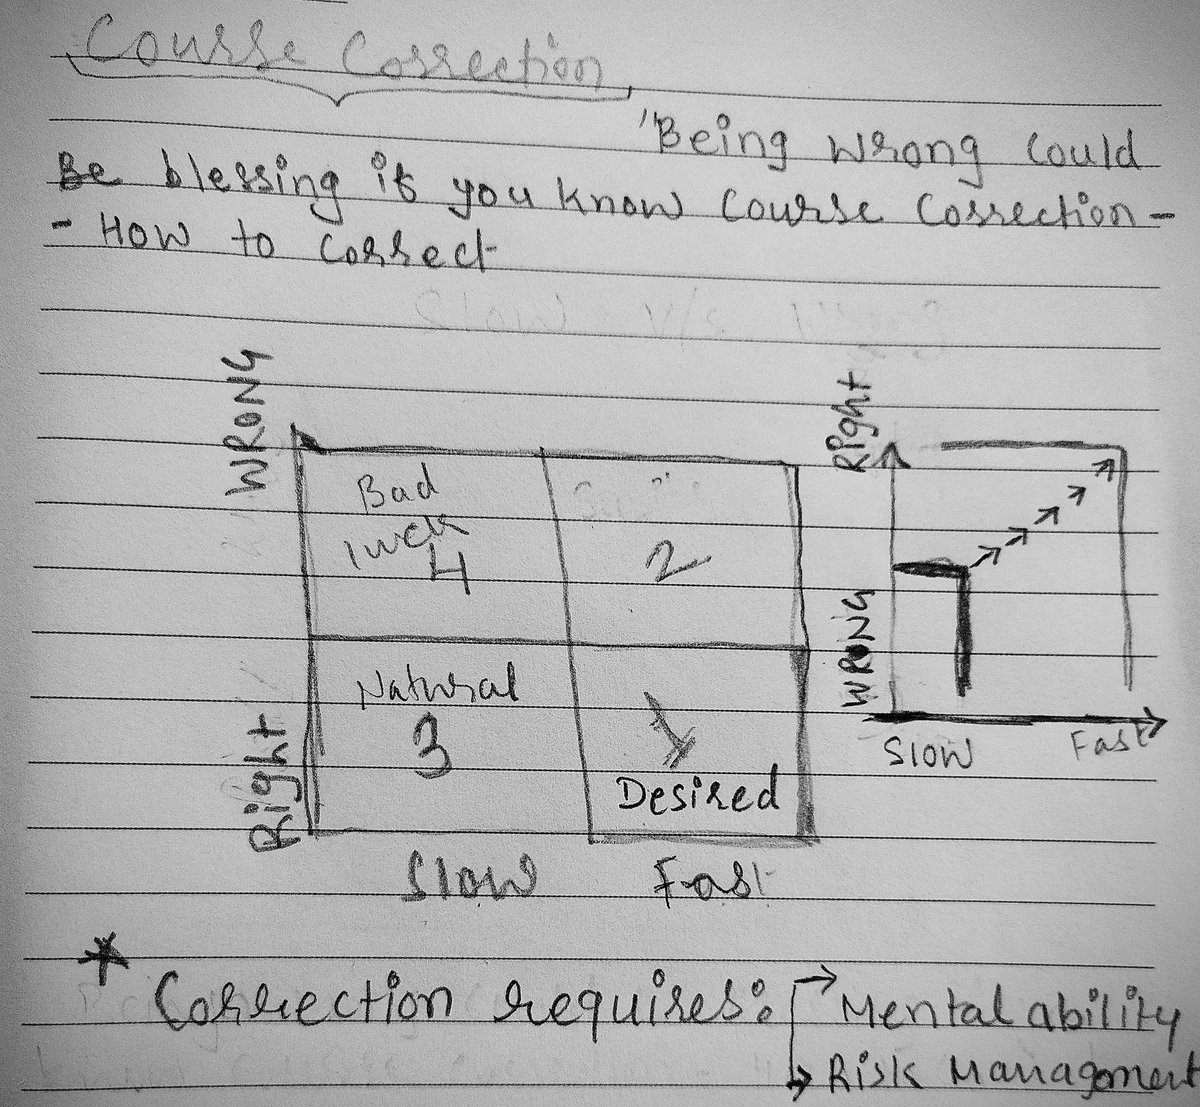 Course Correction
"Being Wrong Could
Be blessing if you know Course Correction -
- How to Correct
WRONG
Bad
luck
4
2
Natural
3
1
Desired
Right
Slow
Fast
Right
WRONG
Slow
Fast
* Correction requires: → Mental ability
→ Risk Management